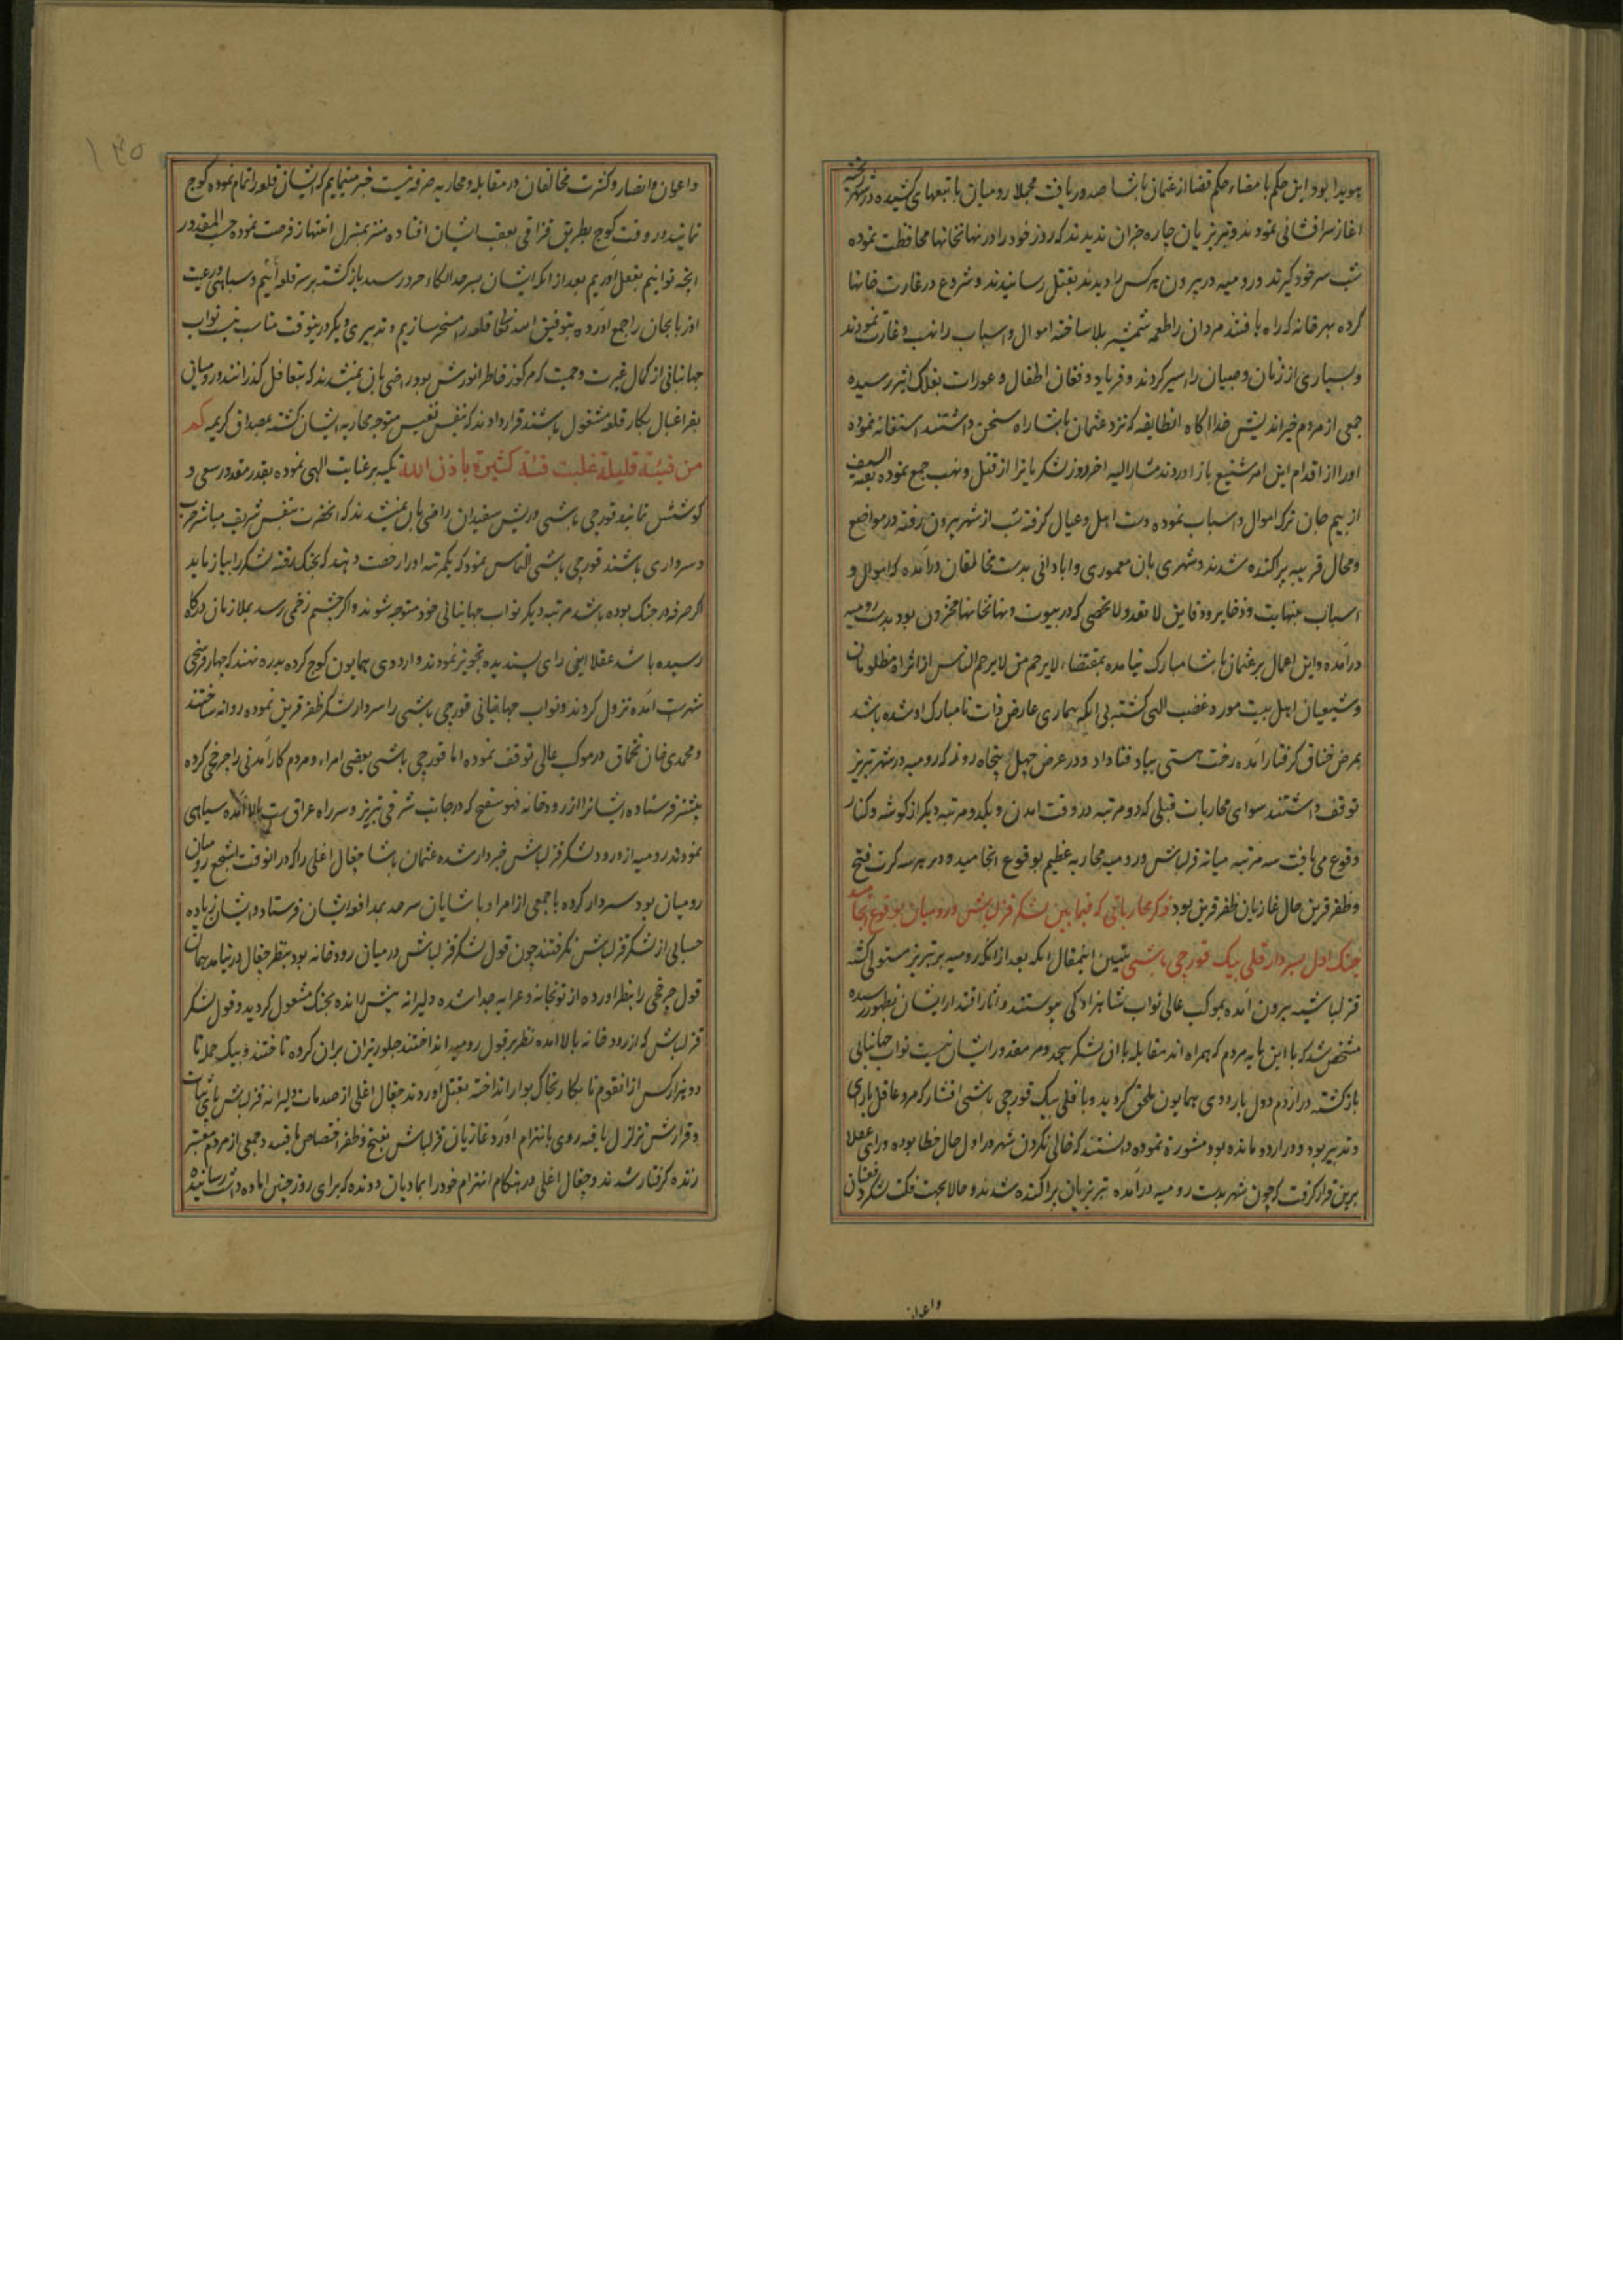 هویدا بود این حکم با مضاء حکم قضا از عثمان پاشا صدور یافت مجملا رومیان با تیغهای کشیده در شهر ریخته
اغاز سرافشانی نمودند و تبریزیان چاره جز ان ندیدند که روز خود را در نهانخانها محافظت نموده
شب سر خود گیرند و رومیه در بیرون هر کس را دیدند بقتل رسانیدند و شروع در غارت خانها
کرده بهر خانه که راه یافتند مردان را طعمه شمشیر بلا ساخته اموال و اسباب را نهب و غارت نمودند
و بسیاری از زنان و صبیان را اسیر کردند و فریاد و فغان اطفال و عورات بفلک اثیر رسیده
جمعی از مردم خیر اندیش خدا اکاه انطایفه که نزد عثمان پاشا راه سخن داشتند استغاثه نموده
او را از اقدام این امر شنیع باز اوردند مشارالیه اخر روز لشکریانرا از قتل و نهب جمع نموده بقیة السیف
از بیم جان ترک اموال و اسباب نموده دست اهل و عیال کرفته شب از شهر بیرون رفته در مواضع
و محال قریبه پراکنده شدند و شهری بان معموری و ابادانی بدست مخالفان درآمده که اموال و
اسباب بینهایت و ذخایر و دفاین لا تعد و لا تحصی که در بیوت و نهانخانها مخزون بود بدست رومیه
درآمده و این اعمال بر عثمان پاشا مبارک نیامده بمقتضاء لا یرحم من لا یرحم الناس از اثر اه مظلومان
و شیعیان اهل بیت مورد غضب الهی کشته بی انکه بیماری عارض ذات نامبارک او شده باشد
بمرض خناق کرفتار آمده رخت هستی بباد فنا داد و در عرض چهل پنجاه روز که رومیه در شهر تبریز
توقف داشتند سوای محاربات قبلی که دو مرتبه در وقت امدن و یکدو مرتبه دیکر از کوشه و کنار
وقوع می یافت سه مرتبه میانه قزلباش و رومیه محاربه عظیم بوقوع انجامیده و در هر سه کرت فتح
و ظفر قرین حال غازیان ظفر قرین بود ذکر محارباتی که فیما بین لشکر قزلباش و رومیان بوقوع انجامید
جنک اول بسردار قلی بیک قورچی باشی تبیین اینمقال انکه بعد از انکه رومیه بر تبریز مستولی کشته
قزلباشیه بیرون آمده بموکب عالی نواب شاهزادکی پیوستند و اثار اقتدار ایشان بظهور رسیده
مشخص شد که با این مایه مردم که همراه اند مقابله با ان لشکر بیحد و مر مقدور ایشان نیست نواب جهانبانی
بازکشته در ازدم دول باردوی همایون ملحق کردید و با قلی بیک قورچی باشی افشار که مرد عاقل با رای
و تدبیر بود و در اردو مانده بود مشورة نموده دانستند که خالی نکردن شهر در اول حال خطا بوده و رای عقلا
برین قرار کرفت که چون شهر بدست رومیه درآمده تبریزیان پراکنده شدند و حالا بجهت
واعوان
۱۳۵
واعوان و انصار و کثرت مخالفان در مقابله و محاربه صرفه نیست خبر مینمایم که ایشان قلعه را تمام نموده کوچ
نمایند و در وقت کوچ بطریق قزاقی بعقب ایشان افتاده منزل بمنزل انتهاز فرصت نموده حسب المقدور
انچه توانیم بفعل آوریم بعد از انکه ایشان بسرحد الکاء خود رسند بازکشته بر سر قلعه آئیم و سپاهی و رعیت
اذربایجان را جمع آورده بتوفیق الله تعالی قلعه را مسخر سازیم و تدبیری دیکر درینوقت مناسب نیست نواب
جهانبانی از کمال غیرت و حمیت که مرکوز خاطر انورش بود راضی بان نمیشدند که بتغافل کذرانند و رومیان
بفراغبال بکار قلعه مشغول باشند قرار دادند که بنفس نفیس متوجه محاربه ایشان کشته بمصداق کریمه کم
من فیئة قلیلة غلبت فئة کثیرة باذن الله تکیه بر عنایت الهی نموده بقدر مقدور سعی و
کوشش نمایند قورچی باشی و ریش سفیدان راضی بان نمیشدند که انحضرت بنفس شریف مباشر حرب
و سرداری باشند قورچی باشی التماس نمود که یکمرتبه او را رخصت دهند که بجنک رفته لشکر را بیازماید
اکر صرفه در جنک بوده باشد مرتبه دیکر نواب جهانبانی خود متوجه شوند و اکر چشم زخمی رسد بملازمان درکاه
رسیده باشد عقلا اینرای پسندیده تجویز نمودند و اردوی همایون کوچ کرده بدره نهند که چهار فرسخی
شهرست آمده نزول کردند و نواب جهانبانی قورچی باشی را سردار لشکر ظفر قرین نموده روانه ساختند
و محمدی خان تخماق در موکب عالی توقف نموده اما قورچی باشی بعضی امراء و مردم کار آمدنی را چرخچی کرده
پیشتر فرستاده ایشانرا از رودخانه فهوسفنج که در جانب شرقی تبریز و سر راه عراق ست بالا آمده سیاهی
نمودند رومیه از ورود لشکر قزلباش خبردار شده عثمان پاشا جغال اغلی را که در انوقت اشجع رومیان
رومیان بود سردار کرده با جمعی از امرا و پاشایان سرحد بمدافعه ایشان فرستاد و ایشان زیاده
حسابی از لشکر قزلباش نکرفتند چون قول لشکر قزلباش در میان رودخانه بود بنظر جغال در نیامد همان
قول چرخچی را بنظر اورده از توپخانه و عرابه جدا شده دلیرانه پیش رانده بجنک مشغول کردید و قول لشکر
قزلباش که از رودخانه بالا آمده نظر بر قول رومیه انداختند جلوریزان بران کرده تاختند و بیک حمله تا
دو هزار کس از انقوم نابکار بخاک بوار انداخته بقتل آوردند جغال اغلی از صدمات دلیرانه قزلباش پای ثبات
و قرارش تزلزل یافته روی بانهزام آورد غازیان قزلباش بفتح و ظفر اختصاص یافتند و جمعی از مردم معتبر
زنده کرفتار شدند و جغال اغلی در هنکام انهزام خود را بمادیان دونده که برای روز چنین اماده داشت رسانیده